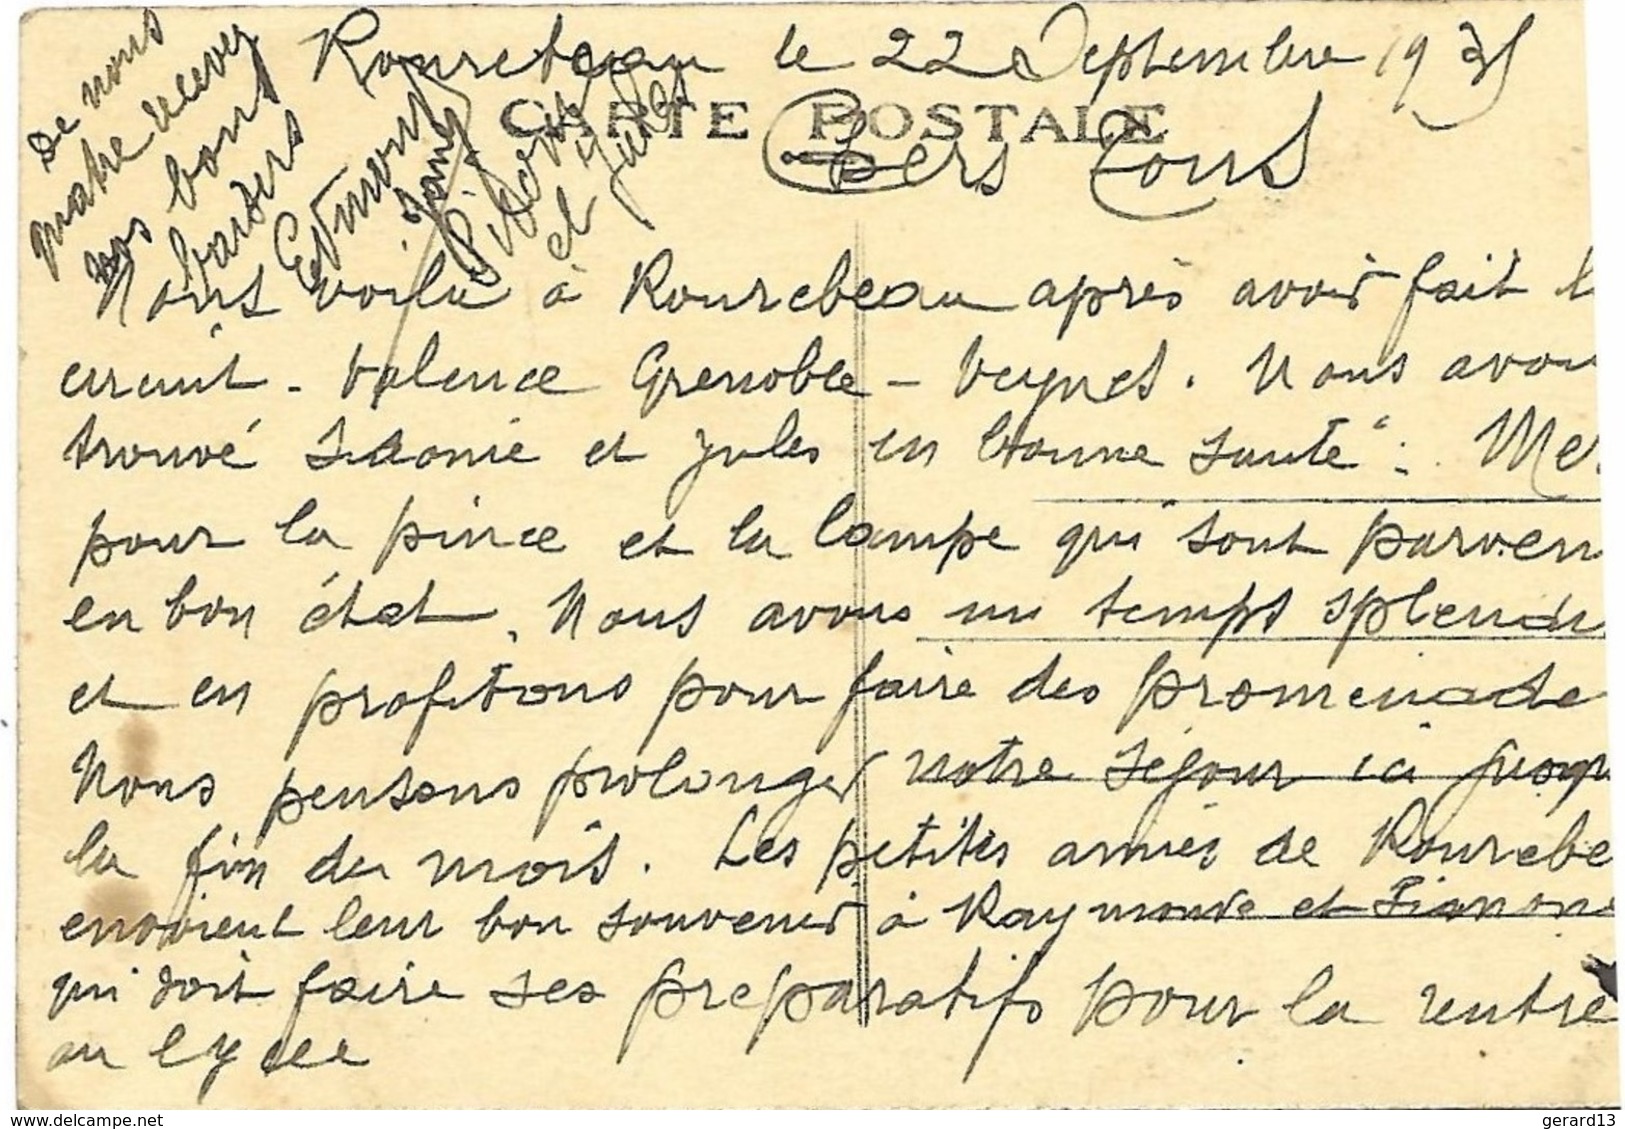 Rourebeau le 22 Septembre 1935
CARTE POSTALE
Chers Tous
Nous voilà à Rourebeau après avoir fait l
circuit - Valence Grenoble - Veynes. Nous avon
trouvé Léonie et Jules en bonne santé. Me
pour la pince et la lampe qui sont parven
en bon état. Nous avons un temps splendi
et en profitons pour faire des promenade
Nous pensons prolonger notre séjour ici jusqu
la fin du mois. Les petites amies de Rourebe
envoient leur bon souvenir à Raymonde et
qui doit faire ses preparatifs pour la rentre
au lycee
De nous
quatre recevez
nos bons
baisers
Edmond
Jany
Léonie
et Jules
gerard13
www.delcampe.net